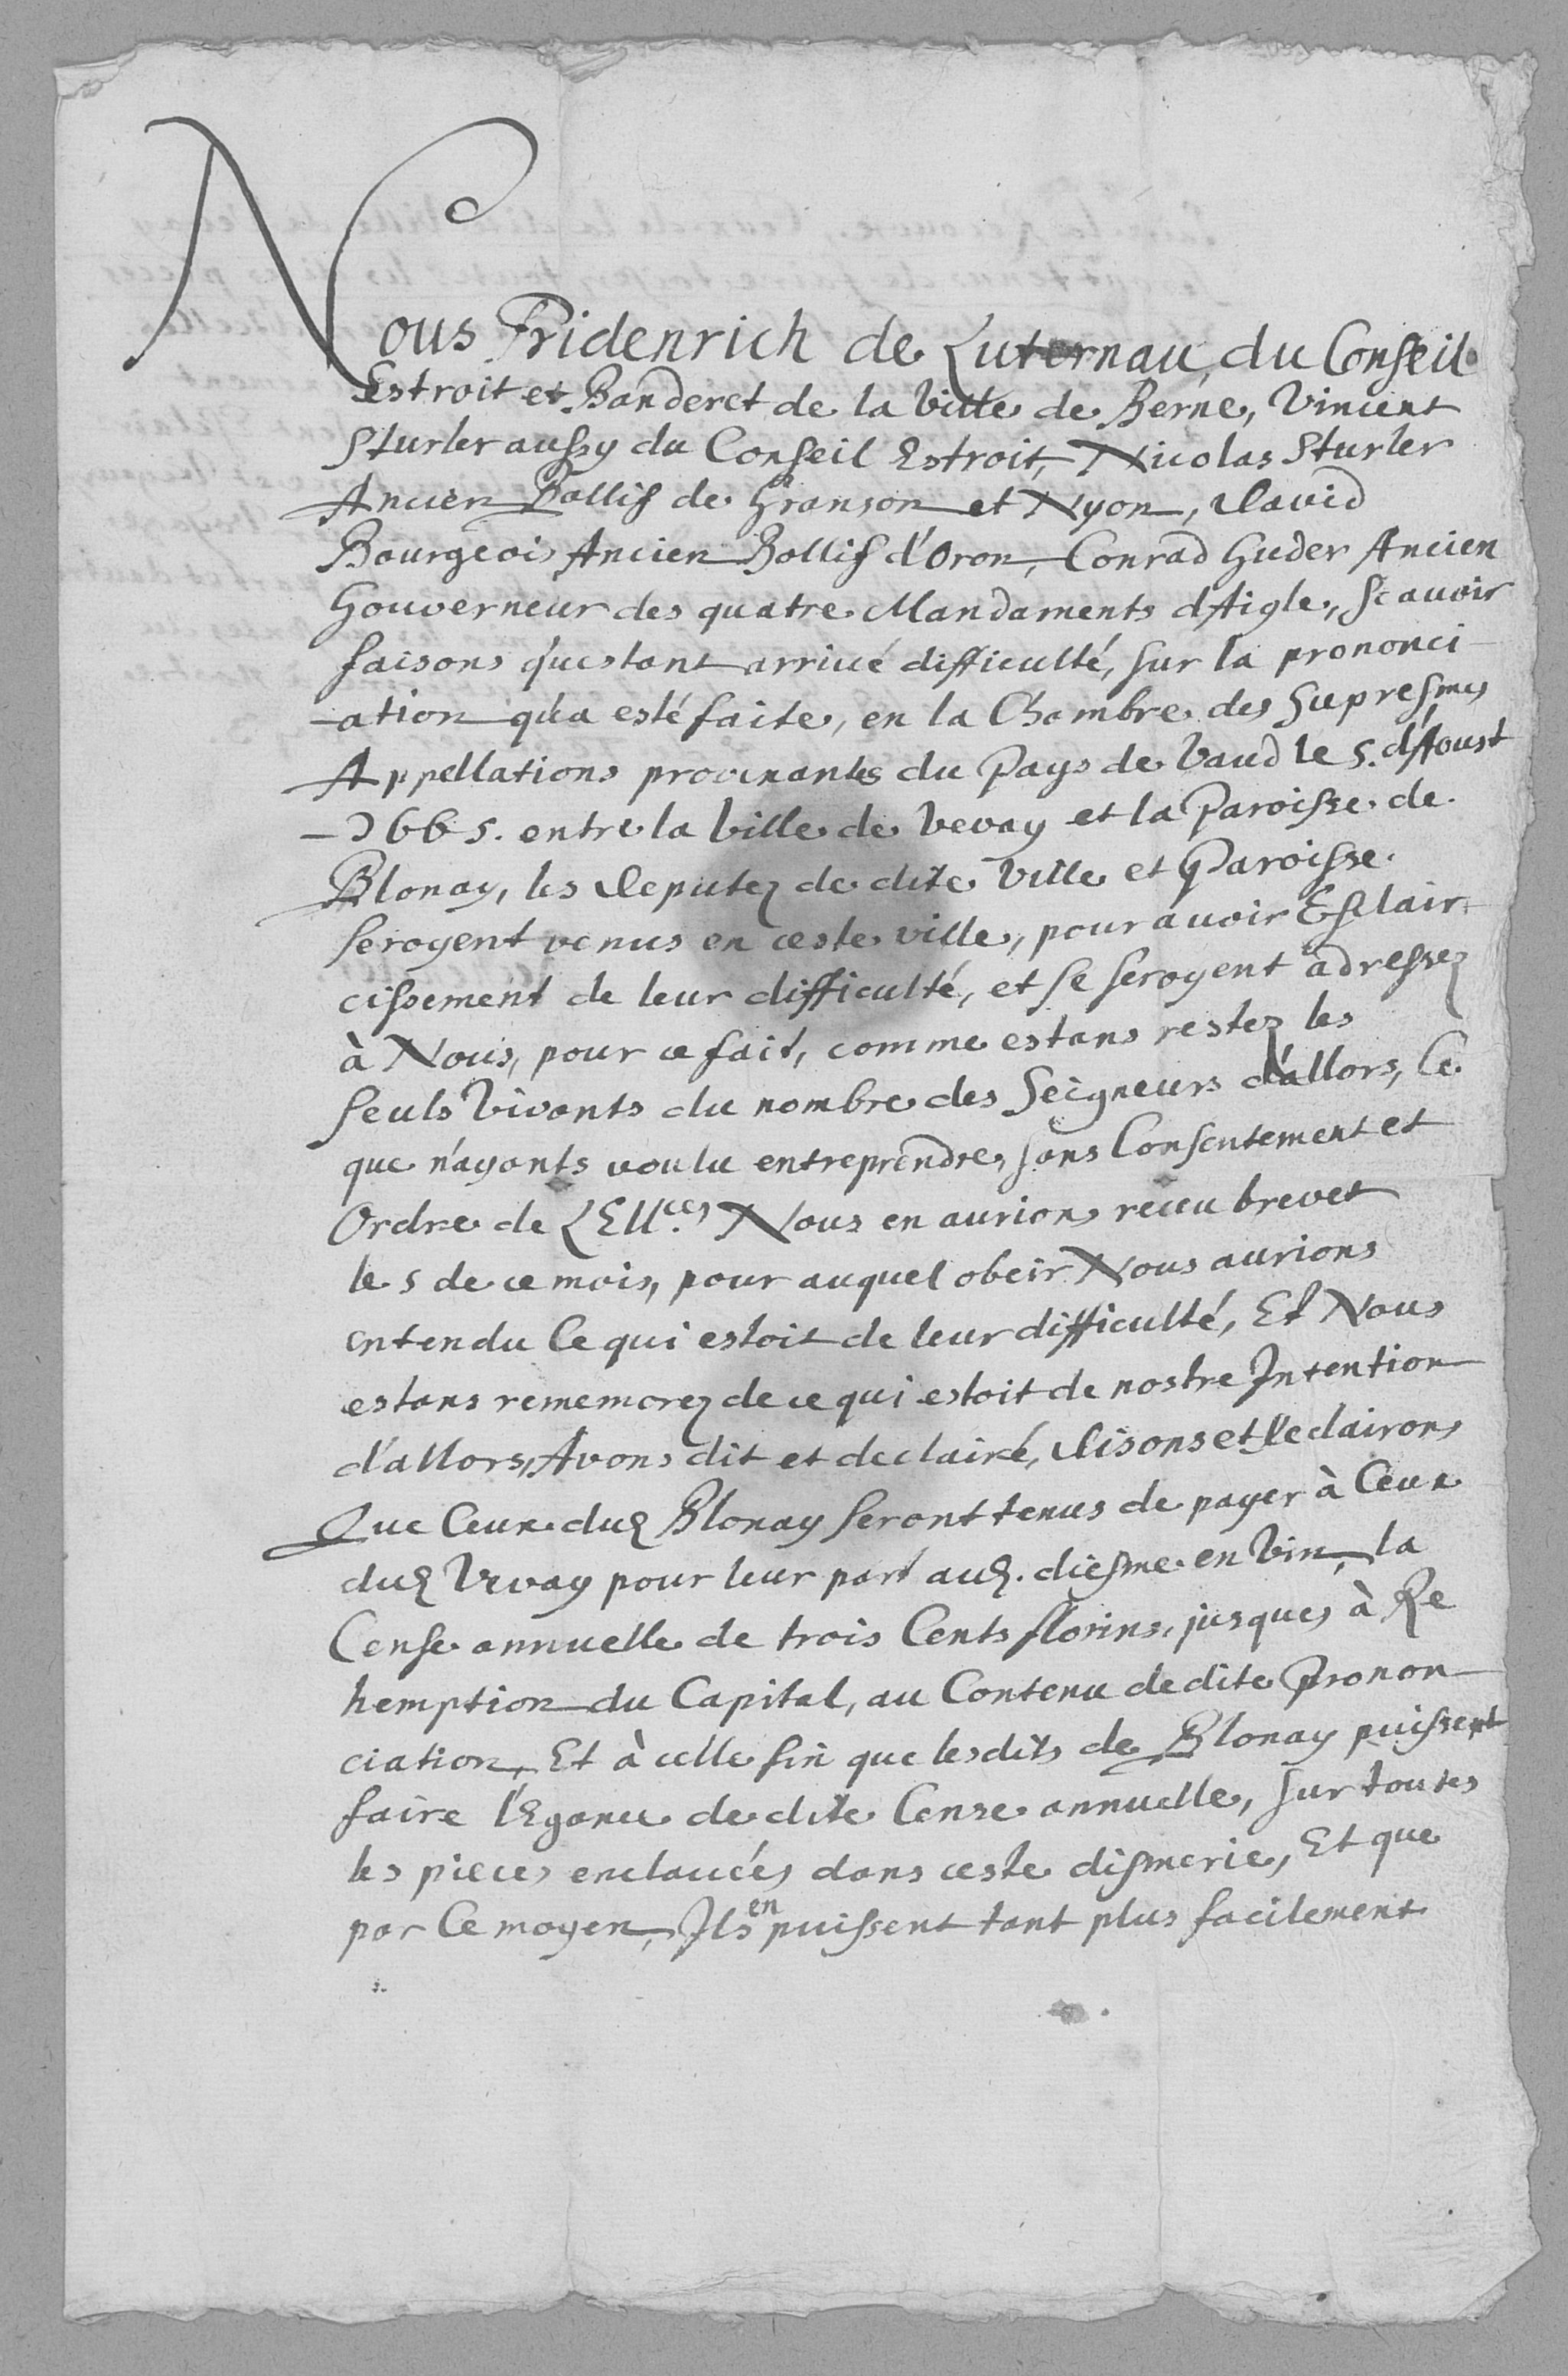 Nous Fridenrich de Luternau, du Conseil
Estroit et Banderet de la Ville de Berne, Vincent
Sturler aussy du Conseil Estroit, Nicolas Sturler
Ancien Ballif de Granson et Nyon, David
Bourgeois Ancien Ballif d'Oron, Conrad Guder Ancien
Gouverneur des quatre Mandaments d'Aigle, Scavoir
faisons qu'estant arrivé difficulté, sur la prononci
-ation qu'a esté faite, en la Chambre des Supresmes
Appellations provenantes du Pays de Vaud le 5. d'Aoust
1665. entre la Ville de Vevay et la Paroisse de
Blonay, les Deputez de dite Ville et Paroisse
seroyent venus en ceste ville, pour avoir Esclair
cissement de leur difficulté, et se seroyent adressez
à Nous, pour ce fait, comme estans restez les
seuls Vivants du nombre des Seigneurs d'allors, Ce
que n'ayants voulu entreprendre, sans Consentement et
Ordre de LLEE.ces Nous en aurions receu brevet
le 5 de ce mois, pour auquel obeir Nous aurions
entendu Ce qui estoit de leur difficulté, Et Nous
estans rememorez de ce qui estoit de nostre Intention
d'allors, Avons dit et declairé, Disons et Declairons
Que Ceux dud Blonay seront tenus de payer à Ceux
dud Vevay pour leur part aud. diesme en Vin, la
Cense annuelle de trois Cents florins, jusques à Re
hemption du Capital, au Contenu de dite Pronon
ciation, Et à celle fin que lesdits de Blonay puissent
faire l'Egance de dite Cense annuelle, sur toutes
les pieces enclavées dans ceste dismerie, Et que
par Ce moyen, Ils en puissent tant plus facilement